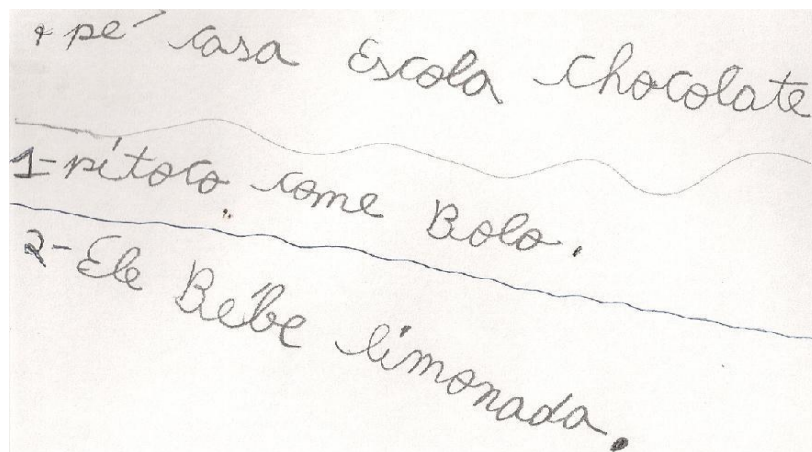 pé casa Escola chocolate
1-pitoco come Bolo.
2-Ele Bébe limonada.